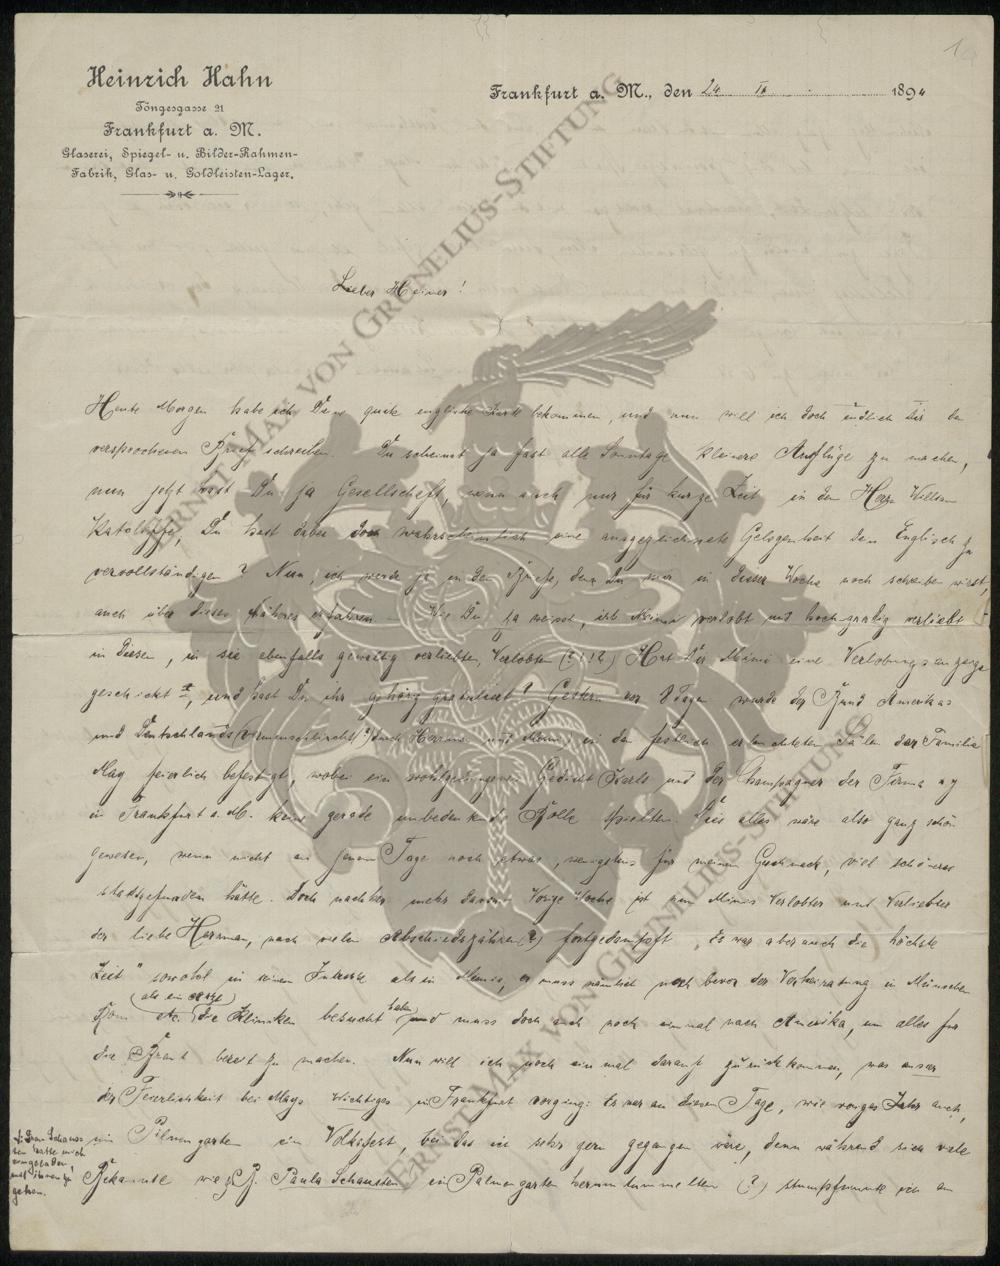 Heinrich Hahn
Töngesgasse 21
Frankfurt a. M.
Glaserei, Spiegel- u. Bilder-Rahmen-
Fabrik, Glas- u. Goldleisten-Lager.
Frankfurt a. M., den 24 1894
Lieber Heiner!
Heute Morgen habe ich Deine gute englische Karte bekommen, und nun will ich doch endlich Dir den
versprochenen Brief schreiben. Du scheinst ja fast alle Sonntage kleinere Ausflüge zu machen,
nun jetzt hast Du ja Gesellschaft, wenn auch nur für kurze Zeit in dem Herrn William
Du hast dabei doch wahrscheinlich eine ausgezeichnete Gelegenheit Dein Englisch zu
vervollständigen? Nun, ich werde ja in dem Briefe, den Du mir in dieser Woche noch schreiben willst,
auch über dieses Näheres erfahren. – Wie Du ja weisst, ist Mimi verlobt und hoch-gradig verliebt
in diesen, in sie ebenfalls gewaltig verliebten, Verlobten (?!!?) Hat Dir Mimi eine Verlobungsanzeige
geschickt, und hast Du ihr gehörig gratuliert? Gestern vor 8 Tagen wurde der Bund Amerikas
und Deutschlands durch Herrman und Mimi in den festlich erleuchteten Sälen der Familie
May feierlich befestigt, wobei ein wohlgelungenes Gedicht Karls und der Champagner der Firma
in Frankfurt a. M. keine gerade unbedeutende Rolle spielten. Dies alles wäre also ganz schön
gewesen, wenn nicht an jenem Tage noch etwas, wenigstens für meinen Geschmack, viel schöneres
stattgefunden hätte. Doch nachher mehr davon. Vorige Woche ist nun Mimis Verlobter und Verliebter
der liebe Herrman, nach vielen Abschiedszähren(?) fortgedampft, "Es war aber auch die höchste
Zeit" sowohl in seinem Interesse als in Mimis, er muss nämlich noch bevor der Verheiratung in München
(als ein Arzt)
Rom etc. die Kliniken besucht haben und muss doch auch noch einmal nach Amerika, um alles für
die Braut bereit zu machen. Nun will ich noch einmal darauf zurückkommen, was ausser
der Feierlichkeit bei Mays Wichtiges in Frankfurt vorging: Es war an diesem Tage, wie voriges Jahr auch,
im Palmengarten ein Volksfest, bei das ich sehr gern gegangen wäre, denn während sich viele
Bekannte wie z. B. Paula Schausten im Palmengarten herumtummelten (?) stumpfsinnte ich an
hatte mich
eingeladen,
mit ihnen zu
gehen.
ERNST MAX VON GRUNELIUS-STIFTUNG
ERNST MAX VON GRUNELIUS-STIFTUNG